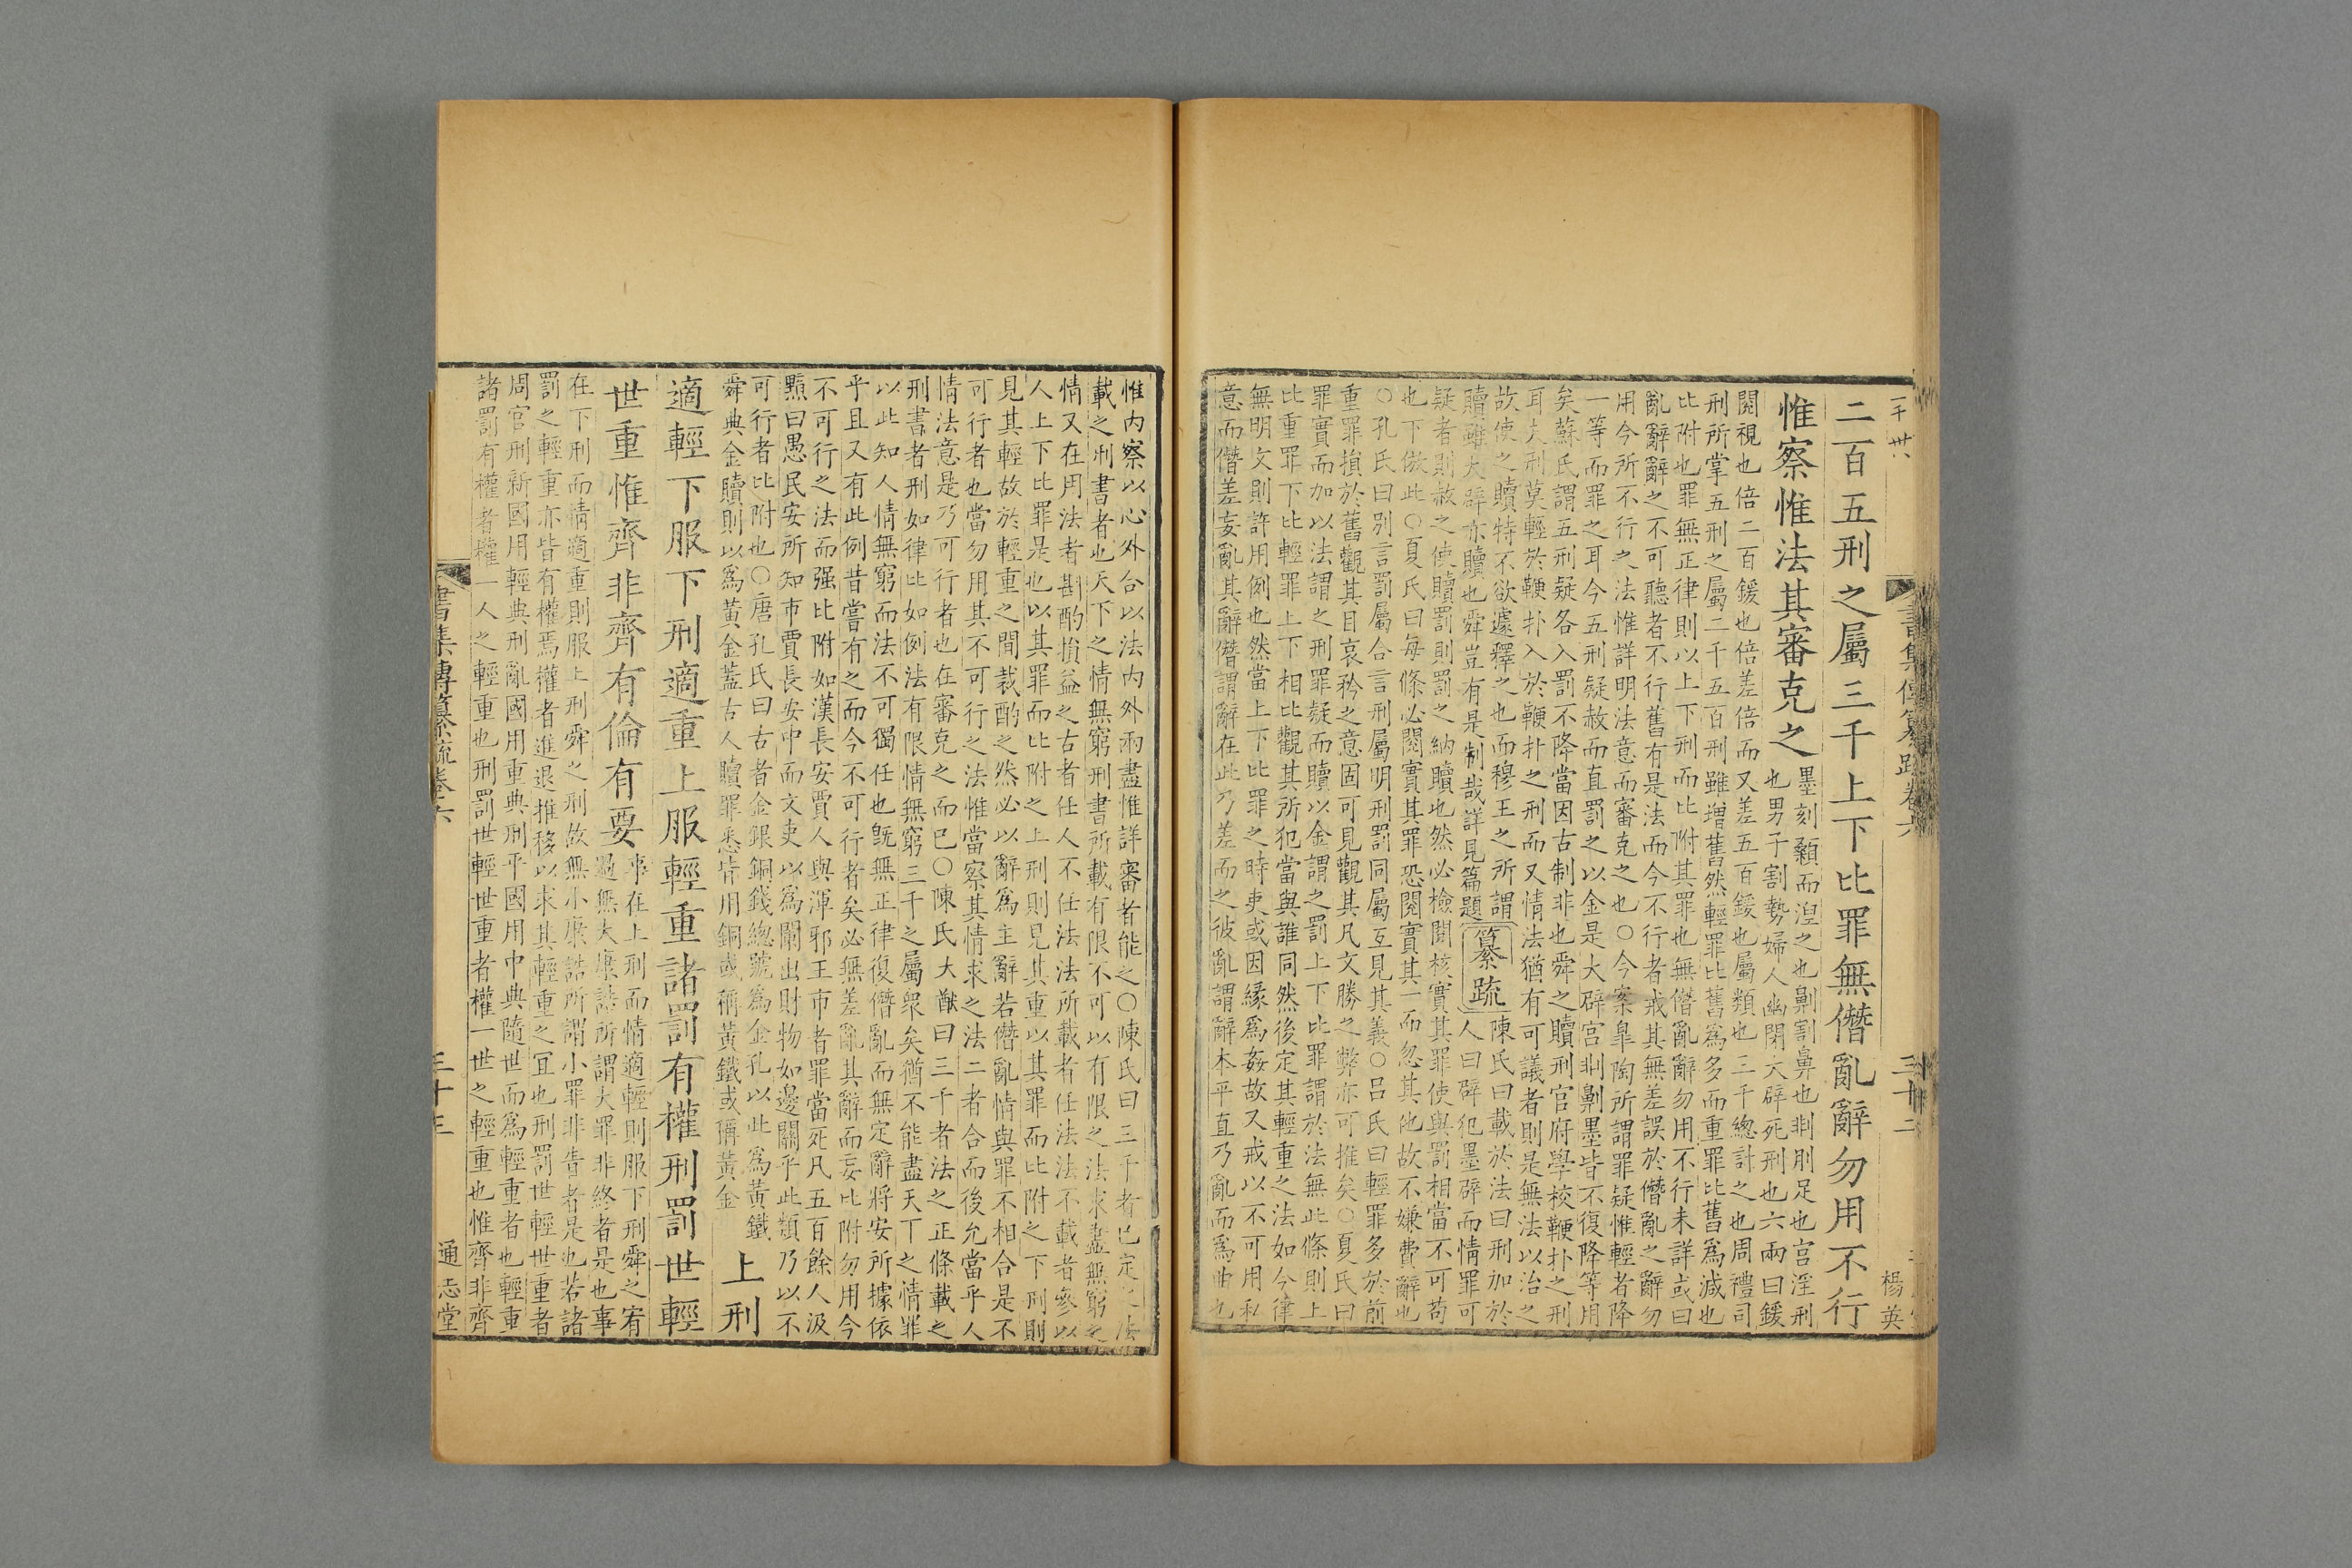 二百五刑之屬三千上下比罪無僭亂辭勿用不行
惟察惟法其審克之
墨刻顙而湼之也劓割鼻也剕刖足也宮淫刑
也男子割勢婦人幽閉大辟死刑也六兩曰鍰
閱視也倍二百鍰也倍差倍而又差五百鍰也屬類也三千總計之也周禮司
刑所掌五刑之屬二千五百刑雖增舊然輕罪比舊爲多而重罪比舊爲減也
比附也罪無正律則以上下刑而比附其罪也無僭亂辭勿用不行未詳或曰
亂辭辭之不可聽者不行舊有是法而今不行者戒其無差誤於僭亂之辭勿
用今所不行之法惟詳明法意而審克之也○今案皐陶所謂罪疑惟輕者降
一等而罪之耳今五刑疑赦而直罰之以金是大辟宮剕劓墨皆不復降等用
矣蘇氏謂五刑疑各入罰不降當因古制非也舜之贖刑官府學校鞭扑之刑
耳夫刑莫輕於鞭扑入於鞭扑之刑而又情法猶有可議者則是無法以治之
故使之贖特不欲遽釋之也而穆王之所謂
贖雖大辟亦贖也舜豈有是制哉詳見篇題
纂疏
陳氏曰載於法曰刑加於
人曰辟犯墨辟而情罪可
疑者則赦之使贖罰則罰之納贖也然必檢閱核實其罪使與罰相當不可苟
也下倣此○夏氏曰每條必閱實其罪恐閱實其一而忽其他故不嫌費辭也
○孔氏曰別言罰屬合言刑屬明刑罰同屬互見其義○呂氏曰輕罪多於前
重罪損於舊觀其目哀矜之意固可見觀其凡文勝之弊亦可推矣○夏氏曰
罪實而加以法謂之刑罪疑而贖以金謂之罰上下比罪謂於法無此條則上
比重罪下比輕罪上下相比觀其所犯當與誰同然後定其輕重之法如今律
無明文則許用例也然當上下比罪之時吏或因緣爲姦故又戒以不可用私
意而僭差妄亂其辭僭謂辭在此乃差而之彼亂謂辭本平直乃亂而爲曲也
惟內察以心外合以法內外兩盡惟詳審者能之○陳氏曰三千者已定之法
載之刑書者也天下之情無窮刑書所載有限不可以有限之法求盡無窮之
情又在用法者斟酌損益之古者任人不任法法所載者任法法不載者參以
人上下比罪是也以其罪而比附之上刑則見其重以其罪而比附之下刑則
見其輕故於輕重之間裁酌之然必以辭爲主辭若僭亂情與罪不相合是不
可行者也當勿用其不可行之法惟當察其情求之法二者合而後允當乎人
情法意是乃可行者也在審克之而已○陳氏大猷曰三千者法之正條載之
刑書者刑如律比如例法有限情無窮三千之屬衆矣猶不能盡天下之情罪
以此知人情無窮而法不可獨任也旣無正律復僭亂而無定辭將安所據依
乎且又有此例昔嘗有之而今不可行者矣必無差亂其辭而妄比附勿用今
不可行之法而强比附如漢長安賈人與渾邪王市者罪當死凡五百餘人汲
黯曰愚民安所知市賈長安中而文吏以爲闌出財物如邊關乎此類乃以不
可行者比附也○唐孔氏曰古者金銀銅錢總號爲金孔以此爲黃鐵
舜典金贖則以爲黃金蓋古人贖罪悉皆用銅或稱黃鐵或稱黃金
上刑
適輕下服下刑適重上服輕重諸罰有權刑罰世輕
世重惟齊非齊有倫有要
事在上刑而情適輕則服下刑舜之宥
過無大康誥所謂大罪非終者是也事
在下刑而情適重則服上刑舜之刑故無小康誥所謂小罪非眚者是也若諸
罰之輕重亦皆有權焉權者進退推移以求其輕重之宜也刑罰世輕世重者
周官刑新國用輕典刑亂國用重典刑平國用中典隨世而爲輕重者也輕重
諸罰有權者權一人之輕重也刑罰世輕世重者權一世之輕重也惟齊非齊
書集傳纂疏卷六
三十三
通志堂
書集傳纂疏卷六
三十二
楊英